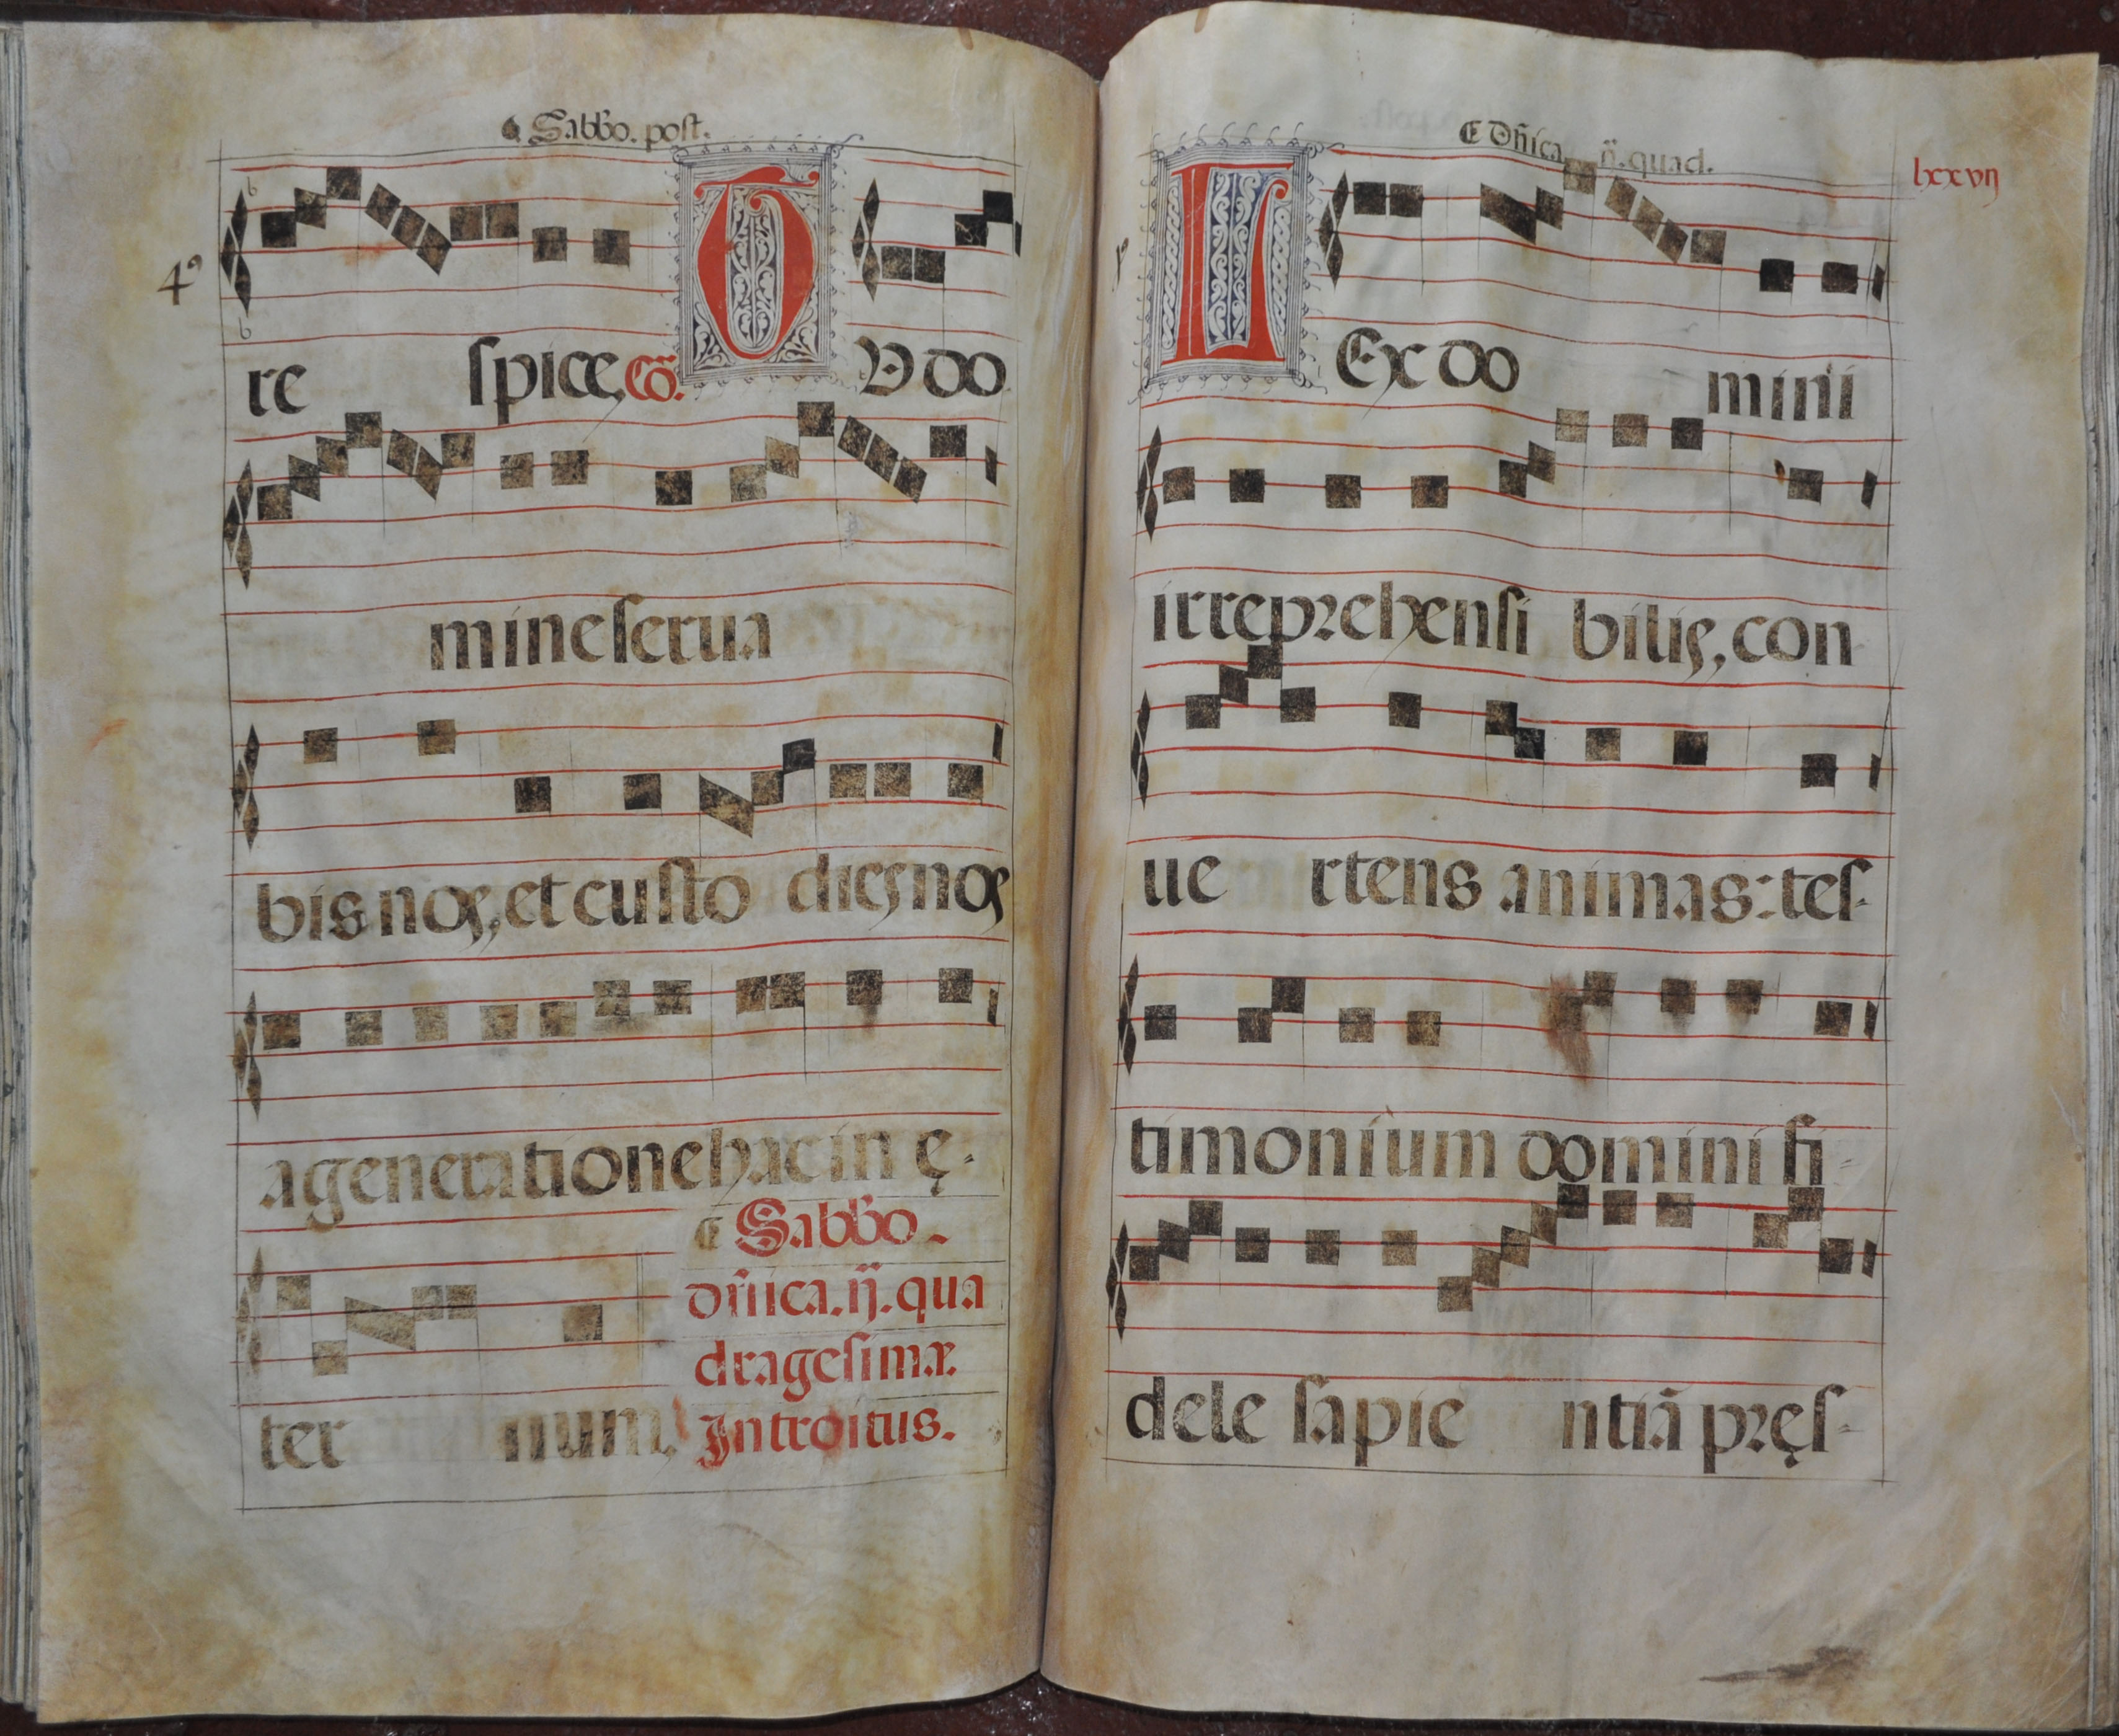 Sabbo. post.
4º
re spice, cõ. T V do
mine serua
bis nos, et custo dies nos
a generatione hac in ę-
ter num.
Sabbo
dñica. ij. qua
dragesimæ
Introitus.
Dñica ij. quad.
lxxvij
L Ex do mini
irreprehensi bilis, con
ue rtens animas: tes-
timonium domini fi-
dele sapie ntiã pręs-